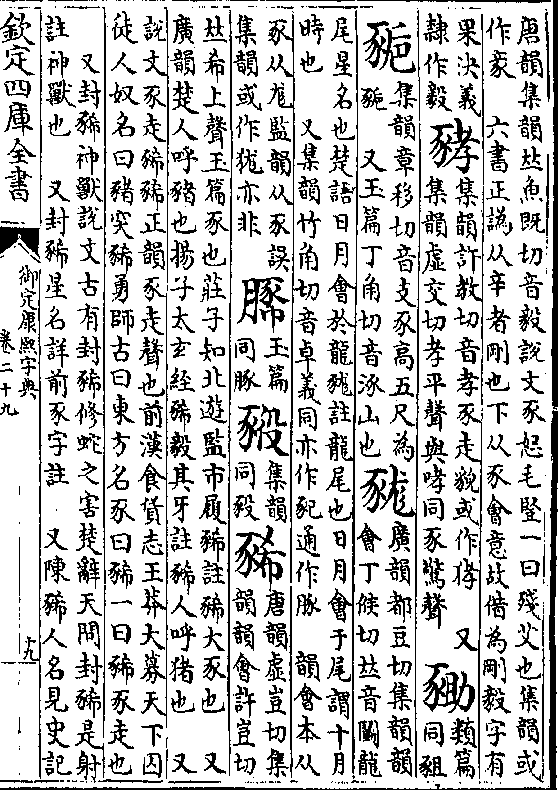 唐韻集韻𠀤魚既切音毅說文豕怒毛豎一曰殘艾也集韻或
作豙　六書正譌从辛者剛也下从豕會意故借為剛毅字有
果決義
隷作毅
集韻許教切音孝豕走貌或作㹲　又
集韻虛交切孝平聲與哮同豕驚聲
類篇
同豠
集韻章移切音支豕高五尺為
又玉篇丁角切音涿山也
廣韻都豆切集韻韻
會丁候切𠀤音鬭龍
尾星名也楚語日月會於龍註龍尾也日月會于尾謂十月
時也　又集韻竹角切音卓義同亦作通作豚　韻會本从
豕从尨監韻从豕誤
集韻或作亦非
玉篇
同豚
集韻
同豛
豨
唐韻虛豈切集
韻韻會許豈切
𠀤希上聲玉篇豕也莊子知北遊監市履豨註豨大豕也　又
廣韻楚人呼豬也揚子太玄經豨毅其牙註豨人呼猪也　又
說文豕走豨豨正韻豕走聲也前漢食貨志王莽大募天下囚
徒人奴名曰豬突豨勇師古曰東方名豕曰豨一曰豨豕走也
又封豨神獸說文古有封豨修蛇之害楚辭天問封豨是射
註神獸也　又封豨星名詳前豕字註　又陳豨人名見史記
欽定四庫全書
御定康熙字典
卷二十九
十九